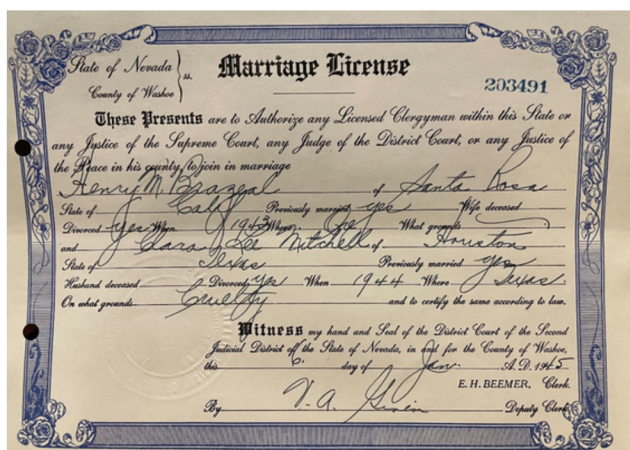 State of Nevada } ss.
Marriage License
County of Washoe
203491
These Presents are to Authorize any Licensed Clergyman within this State or
any Justice of the Supreme Court, any Judge of the District Court, or any Justice of
the Peace in his county, to join in marriage
Henry M. Brazeal of Santa Rosa
State of Calif Previously married, yes Wife deceased
Divorced yes When 1943 Where What grounds
and Clara Lee Mitchell of Houston
State of Texas Previously married yes
Husband deceased Divorced yes When 1944 Where Texas.
On what grounds. Cruelty and to certify the same according to law.
Witness my hand and Seal of the District Court of the Second
Judicial District of the State of Nevada, in and for the County of Washoe,
this 6 day of Jan. A. D. 1945
E. H. BEEMER, Clerk.
By V. A. Deputy Clerk